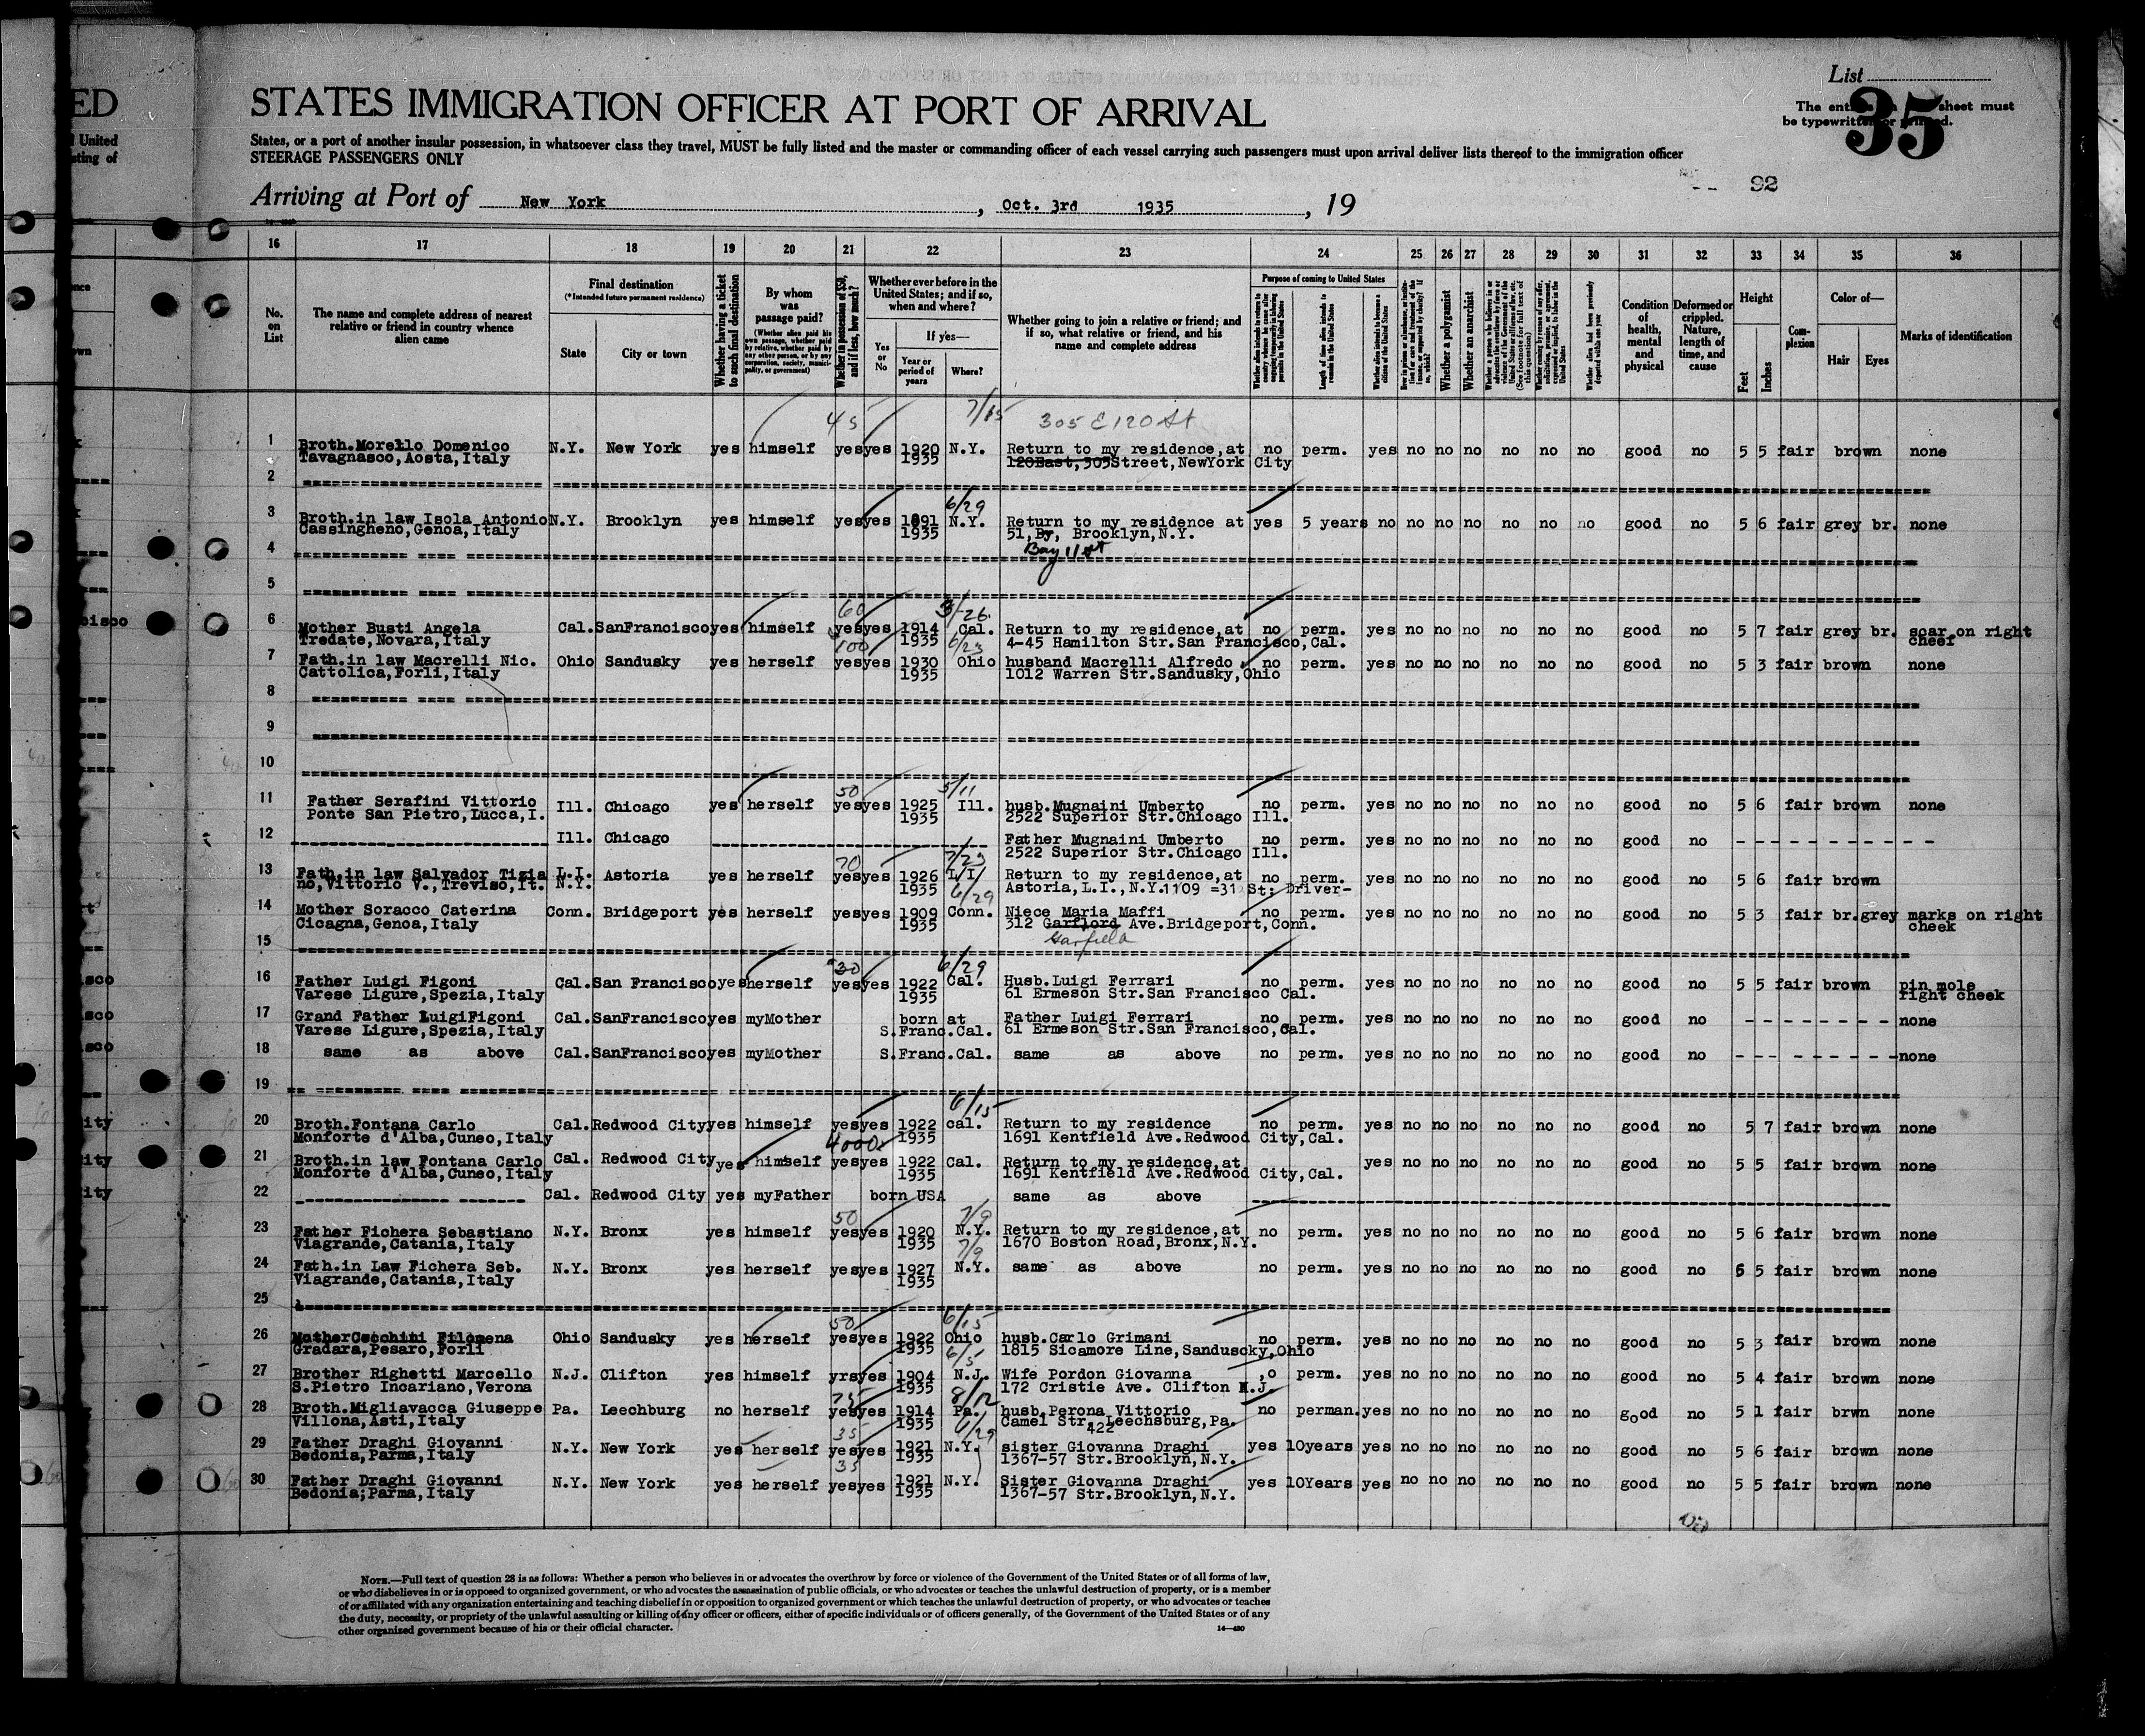 ED
List
STATES IMMIGRATION OFFICER AT PORT OF ARRIVAL
35
The entries sheet must
be typewritten or printed.
United
sting of
States, or a port of another insular possession, in whatsoever class they travel, MUST be fully listed and the master or commanding officer of each vessel carrying such passengers must upon arrival deliver lists thereof to the immigration officer
STEERAGE PASSENGERS ONLY
92
Arriving at Port of New York, Oct. 3rd 1935, 19
16 17 18 19 20 21 22 23 24 25 26 27 28 29 30 31 32 33 34 35 36
No. on List
The name and complete address of nearest relative or friend in country whence alien came
Final destination
(*Intended future permanent residence)
State
City or town
Whether having a ticket to such final destination
By whom was passage paid?
(Whether alien paid his own passage, whether paid by relative, whether paid by any other person, or by any corporation, society, municipality, or government)
Whether in possession of $50, and if less, how much?
Whether ever before in the United States; and if so, when and where?
Yes or No
If yes—
Year or period of years
Where?
Whether going to join a relative or friend; and if so, what relative or friend, and his name and complete address
Purpose of coming to United States
Length of time alien intends to remain in the United States
Whether alien intends to become a citizen of the United States
Whether a polygamist
Whether an anarchist
Condition of health, mental and physical
Deformed or crippled. Nature, length of time, and cause
Height
Feet
Inches
Complexion
Color of—
Hair
Eyes
Marks of identification
45 7/15 305 E 120 St
1 Broth.Morello Domenico N.Y. New York yes himself yes yes 1920 N.Y. Return to my residence,at no perm. yes no no no no no no good no 5 5 fair brown none
Tavagnasco,Aosta,Italy 1935 120East,305Street,NewYork City
2
6/29
3 Broth.in law Isola Antonio N.Y. Brooklyn yes himself yes yes 1891 N.Y. Return to my residence at yes 5 years no no no no no no no good no 5 6 fair grey br. none
Cassingheno,Genoa,Italy 1935 51,By, Brooklyn,N.Y.
4 Bay 11 St
5
60 3/26
6 Mother Busti Angela Cal. SanFrancisco yes himself yes yes 1914 Cal. Return to my residence,at no perm. yes no no no no no no good no 5 7 fair grey br. scar on right
Tredate,Novara,Italy 1935 4-45 Hamilton Str.San Francisco,Cal. cheef
100 6/23
7 Fath.in law Macrelli Nic. Ohio Sandusky yes herself yes yes 1930 Ohio husband Macrelli Alfredo no perm. yes no no no no no no good no 5 3 fair brown none
Cattolica,Forli,Italy 1935 1012 Warren Str.Sandusky,Ohio
8
9
10
50 5/11
11 Father Serafini Vittorio Ill. Chicago yes herself yes yes 1925 Ill. husb.Mugnaini Umberto no perm. yes no no no no no no good no 5 6 fair brown none
Ponte San Pietro,Lucca,I. 1935 2522 Superior Str.Chicago Ill.
12 Ill. Chicago Father Mugnaini Umberto no perm. yes no no no no no no good no
2522 Superior Str.Chicago Ill.
70 7/23
13 Fath.in law Salvador Tizia L.I. Astoria yes herself yes yes 1926 L.I. Return to my residence,at no perm. yes no no no no no no good no 5 6 fair brown
no,Vittorio V.,Treviso,It. N.Y. 1935 Astoria,L.I.,N.Y.1109 =31 St; Driver-
6/29
14 Mother Soracco Caterina Conn. Bridgeport yes herself yes yes 1909 Conn. Niece Maria Maffi no perm. yes no no no no no no good no 5 3 fair br.grey marks on right
Cicagna,Genoa,Italy 1935 312 Garflord Ave.Bridgeport,Conn. cheek
15 Garfield
30 6/29
16 Father Luigi Figoni Cal. San Francisco yes herself yes yes 1922 Cal. Husb.Luigi Ferrari no perm. yes no no no no no no good no 5 5 fair brown pin mole
Varese Ligure,Spezia,Italy 1935 61 Ermeson Str.San Francisco Cal. right cheek
17 Grand Father LuigiFigoni Cal. SanFrancisco yes myMother born at Father Luigi Ferrari no perm. yes no no no no no no good no none
Varese Ligure,Spezia,Italy S.Franc.Cal. 61 Ermeson Str.San Francisco,Cal.
18 same as above Cal. SanFrancisco yes myMother S.Franc.Cal. same as above no perm. yes no no no no no no good no none
19
6/15
20 Broth.Fontana Carlo Cal. Redwood City yes himself yes yes 1922 cal. Return to my residence no perm. yes no no no no no no good no 5 7 fair brown none
Monforte d'Alba,Cuneo,Italy 1935 1691 Kentfield Ave.Redwood City,Cal.
4000
21 Broth.in law Fontana Carlo Cal. Redwood City yes himself yes yes 1922 Cal. Return to my residence,at yes no no no no no no good no 5 5 fair brown none
Monforte d'Alba,Cuneo,Italy 1935 1691 Kentfield Ave.Redwood City,Cal.
22 Cal. Redwood City yes myFather born USA same as above
50 7/9
23 Father Fichera Sebastiano N.Y. Bronx yes himself yes yes 1920 N.Y. Return to my residence,at no perm. yes no no no no no no good no 5 6 fair brown none
Viagrande,Catania,Italy 1935 1670 Boston Road,Bronx,N.Y.
7/9
24 Fath.in Law Fichera Seb. N.Y. Bronx yes herself yes yes 1927 N.Y. same as above no perm. yes no no no no no no good no 5 5 fair brown none
Viagrande,Catania,Italy 1935
25
50 6/15
26 MotherCecchini Filomena Ohio Sandusky yes herself yes yes 1922 Ohio husb.Carlo Grimani no perm. yes no no no no no no good no 5 3 fair brown none
Gradara,Pesaro,Forli 1935 1815 Sicamore Line,Sanduscky,Ohio
6/5
27 Brother Righetti Marcello N.J. Clifton yes himself yrs yes 1904 N.J. Wife Pordon Giovanna ,o perm. yes no no no no no no good no 5 4 fair brown none
S.Pietro Incariano,Verona 1935 172 Cristie Ave. Clifton N.J.
75 8/12
28 Broth.Migliavacca Giuseppe Pa. Leechburg no herself yes yes 1914 Pa. husb.Perona Vittorio no perman. yes no no no no no no good no 5 1 fair brwn none
Villona,Asti,Italy 1935 Camel Str. Leechsburg,Pa.
422
35 6/29
29 Father Draghi Giovanni N.Y. New York yes herself yes yes 1921 N.Y. sister Giovanna Draghi yes 10years yes no no no no no no good no 5 6 fair brown none
Bedonia,Parma,Italy 1935 1367-57 Str.Brooklyn,N.Y.
35
30 Father Draghi Giovanni N.Y. New York yes herself yes yes 1921 N.Y. Sister Giovanna Draghi yes 10Years yes no no no no no no good no 5 5 fair brown none
Bedonia;Parma,Italy 1935 1367-57 Str.Brooklyn,N.Y.
NOTE.—Full text of question 28 is as follows: Whether a person who believes in or advocates the overthrow by force or violence of the Government of the United States or of all forms of law,
or who disbelieves in or is opposed to organized government, or who advocates the assassination of public officials, or who advocates or teaches the unlawful destruction of property, or is a member
of or affiliated with any organization entertaining and teaching disbelief in or opposition to organized government or which teaches the unlawful destruction of property, or who advocates or teaches
the duty, necessity, or propriety of the unlawful assaulting or killing of any officer or officers, either of specific individuals or of officers generally, of the Government of the United States or of any
other organized government because of his or their official character.
14—430